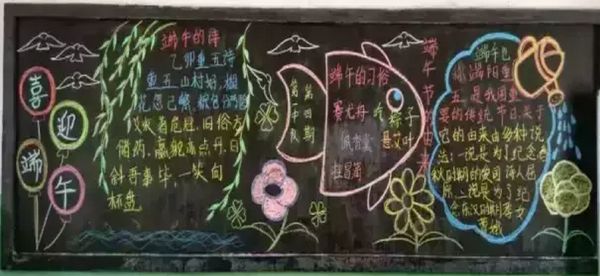 喜
迎
端
午
端午的诗
乙卯重五诗
重五山村好,榴
花忽已繁。粽包分两髻
艾束著危冠。旧俗方
储药,羸躯亦点丹。日
斜吾事毕,一笑向
杯盘
第
期
端午的习俗
赛龙舟
吃粽子
佩香囊
悬艾叶
端
午
节
的
由
来
端午也
称端阳重
五是我国重
要的传统节日,关于
它的由来由多种说
法:一说是为了纪念春
秋时期的爱国诗人屈
原。二说是为了纪
念东汉的期孝女
曹娥